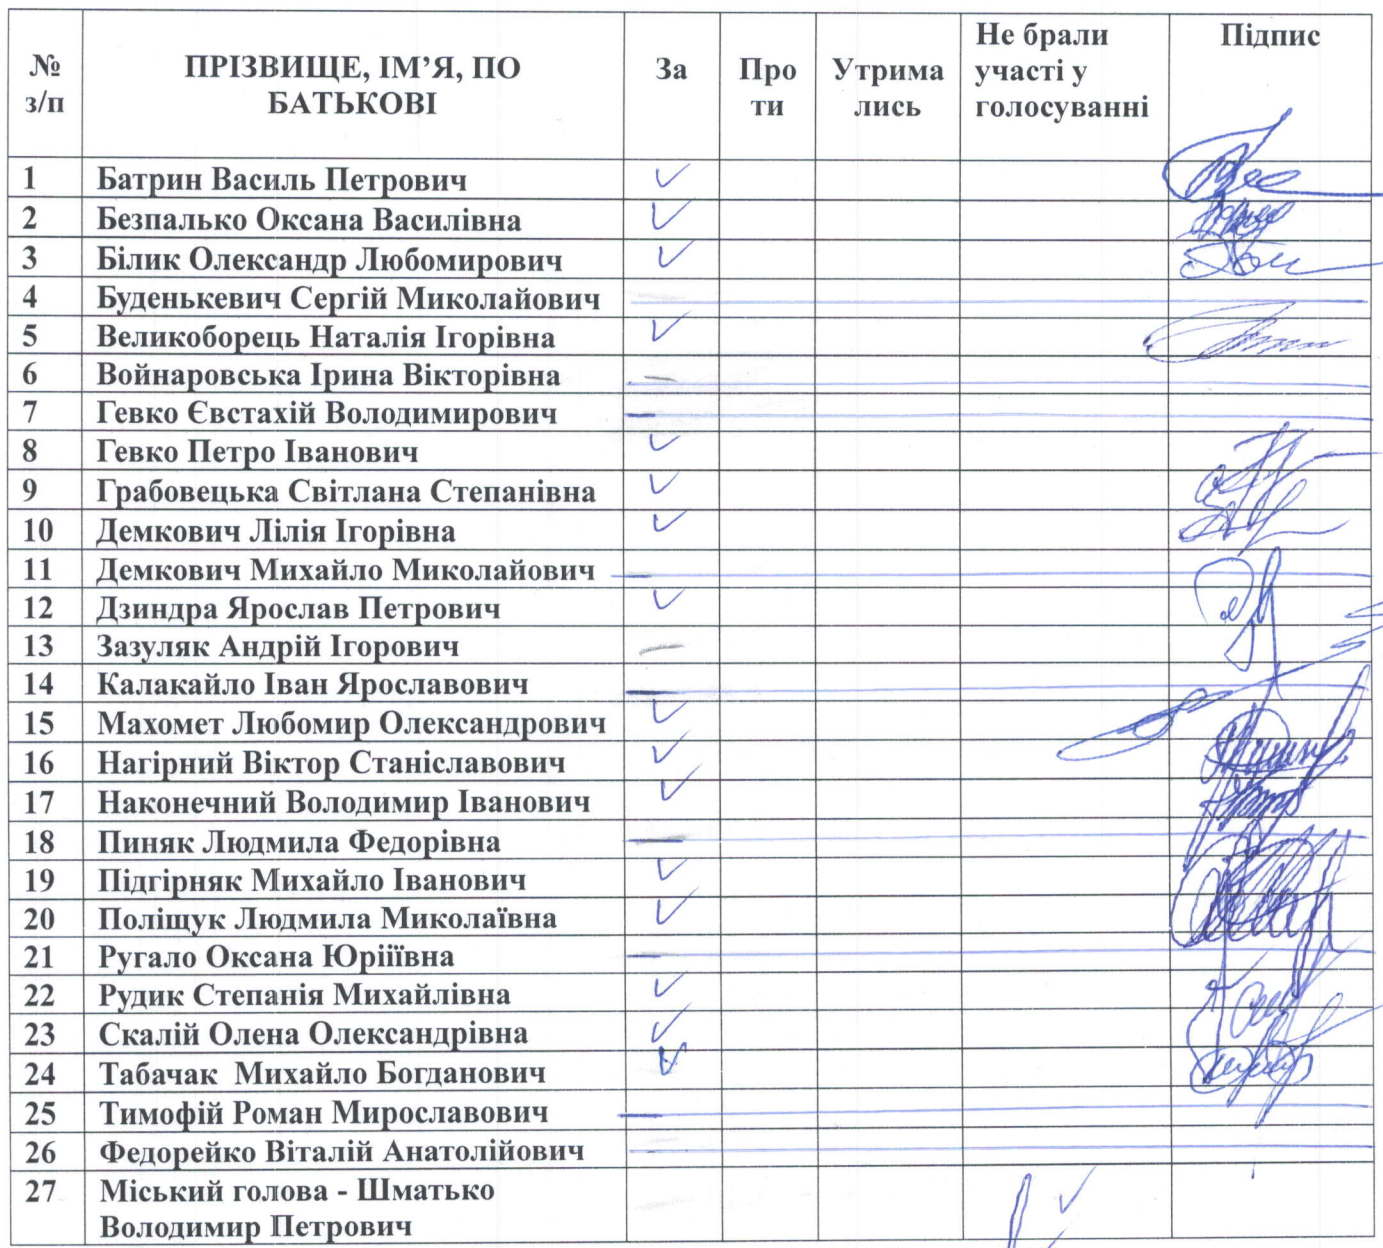 № з/п ПРІЗВИЩЕ, ІМ’Я, ПО БАТЬКОВІ За Про ти Утрима лись Не брали участі у голосуванні Підпис
1 Батрин Василь Петрович ✓
2 Безпалько Оксана Василівна ✓
3 Білик Олександр Любомирович ✓
4 Буденькевич Сергій Миколайович
5 Великоборець Наталія Ігорівна ✓
6 Войнаровська Ірина Вікторівна
7 Гевко Євстахій Володимирович
8 Гевко Петро Іванович ✓
9 Грабовецька Світлана Степанівна ✓
10 Демкович Лілія Ігорівна ✓
11 Демкович Михайло Миколайович
12 Дзиндра Ярослав Петрович ✓
13 Зазуляк Андрій Ігорович
14 Калакайло Іван Ярославович
15 Махомет Любомир Олександрович ✓
16 Нагірний Віктор Станіславович ✓
17 Наконечний Володимир Іванович ✓
18 Пиняк Людмила Федорівна
19 Підгірняк Михайло Іванович ✓
20 Поліщук Людмила Миколаївна ✓
21 Ругало Оксана Юріїївна
22 Рудик Степанія Михайлівна ✓
23 Скалій Олена Олександрівна ✓
24 Табачак Михайло Богданович ✓
25 Тимофій Роман Мирославович
26 Федорейко Віталій Анатолійович
27 Міський голова - Шматько ✓
Володимир Петрович